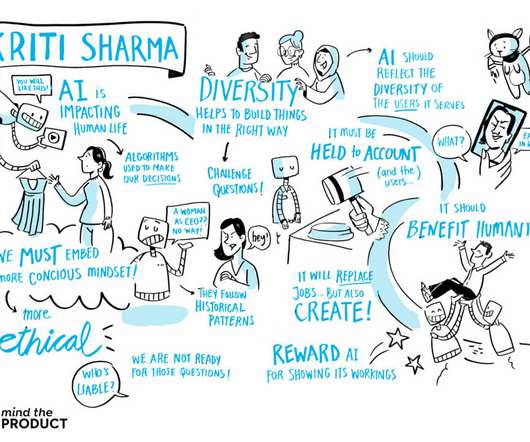 KRITI SHARMA
YOU WILL
LIKE THIS!
AI is
IMPACTING
HUMAN LIFE
ALGORITHMS
USED TO MAKE
OUR DECISIONS
WE MUST EMBED
MORE CONCIOUS MINDSET!
more
ethical
WHO'S
LIABLE?
WE ARE NOT READY
FOR THOSE QUESTIONS!
DIVERSITY
HELPS TO BUILD THINGS
IN THE RIGHT WAY
CHALLENGE
QUESTIONS!
A WOMAN
AS CEO??
NO WAY!
hey!
THEY FOLLOW
HISTORICAL
PATTERNS
AI SHOULD
REFLECT THE
DIVERSITY OF
THE USERS IT SERVES
IT MUST BE
HELD to ACCOUNT
(and the
users...
WHAT?
IT SHOULD
BENEFIT HUMANI
IT WILL REPLACE
JOBS... BUT ALSO
CREATE!
REWARD AI
FOR SHOWING ITS WORKINGS
mind the
PRODUCT